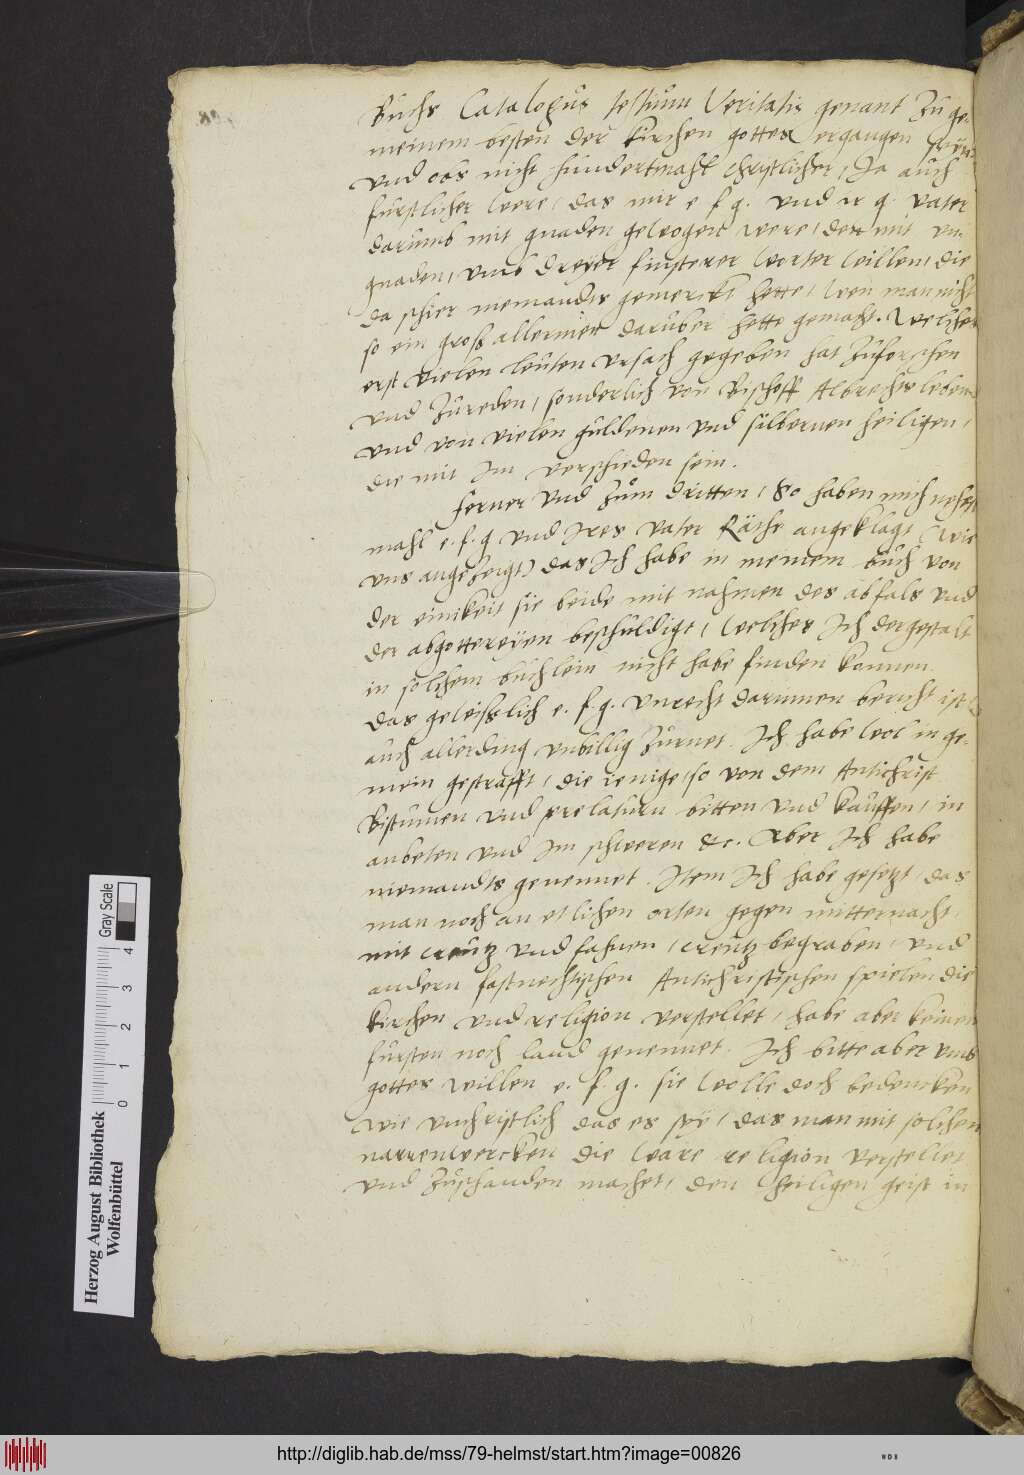 Buchs Catalogus testium Veritatis genant zu ge-
meinem besten der kirchen gottes ergangen
und obs nicht hundertmahl christlicher, Ja auch
furstlicher were, das mir e f g. und ir g. vater
darumb mit gnaden gewogen were, den mit un
gnaden, umb dreyer finsterer worter willen, die
da schier niemandts gemerckt hette, wen man nicht
so ein groß allermen daruber hette gemacht. Welches
erst vielen leuten ursach gegeben hat zuforschen
und zureden, sonderlich von Bischoff Albrechts leben
und von vielen guldenen und silbernen heiligen,
die mit Im verschieden sein.
Ferner und zum dritten, So haben mich
mahl e. f. g und Ires vater Räthe angeklagt (wie
uns angezeigt) das Ich habe in meinem buch von
der einikeit sie beide mit nahmen des abfals und
der abgottereyen beschuldigt, welches Ich dergestalt
in solchem buchlein nicht habe finden konnen.
das gewißlich e. f. g. unrecht darinnen bericht ist
auch allerding unbillig zurnet. Ich habe wol in ge-
mein gestrafft, die ienige, so von dem Antichrist
Bistumen und prelaturn bitten und kauffen, in
anbeten und im schweren &c. Aber Ich habe
niemandts genennet. Item Ich habe gesetzt, das
man noch an etlichen orten gegen mitternacht,
mit creutz und fahnen, creutz begraben, und
andern fastnechtischen Antichristischen spielen die
kirchen und religion verstellet, habe aber keinen
fursten noch land genennet. Ich bitte aber umb
gottes willen e. f. g. sie wolle doch bedencken
wie unchristlich das es sey, das man mit solchen
narrenwercken die ware religion verstellet
und zuschanden machet, den heiligen geist in
Herzog August Bibliothek
Wolfenbüttel
0 1 2 3 4
Gray Scale
http://diglib.hab.de/mss/79-helmst/start.htm?image=00826